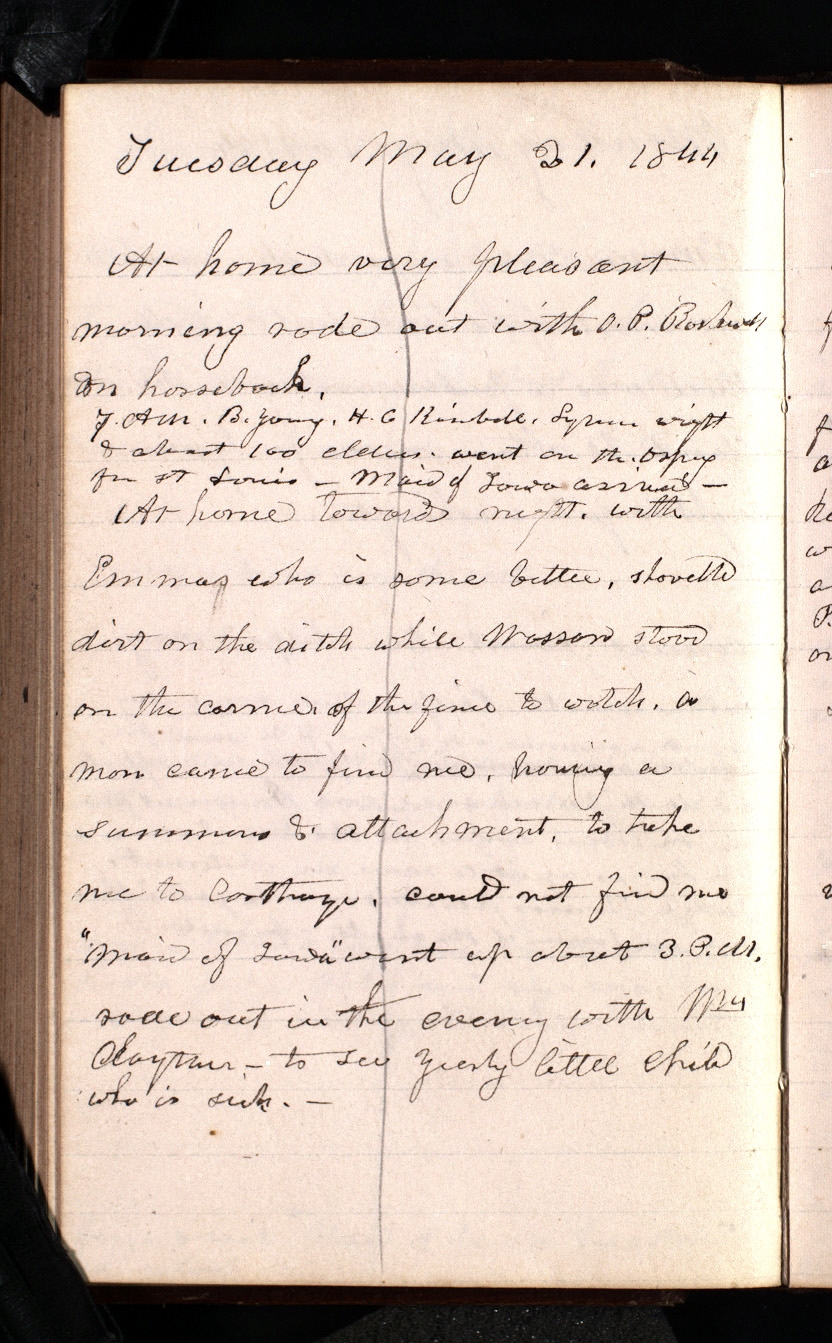 Tuesday May 21. 1844
At home very pleasant
morning rode out with O. P. Rockwell
on horseback.
7. A M. B. Young. H. C Kimball. Lyman wight
& about 100 elders. went on the. Osprey
for St Louis — Maid of Iowa arrived —
At home toward night. with
Emma who is some better, shovelld
dirt on the ditch while Wasson stood
on the corner of the fence to watch. a
man came to find me, having a
summons & attachment, to take
me to Carthage. could not find me
"Maid of Iowa" went up about 3. P.M.
rode out in the evening with
Clayton — to see little child
who is sick. —